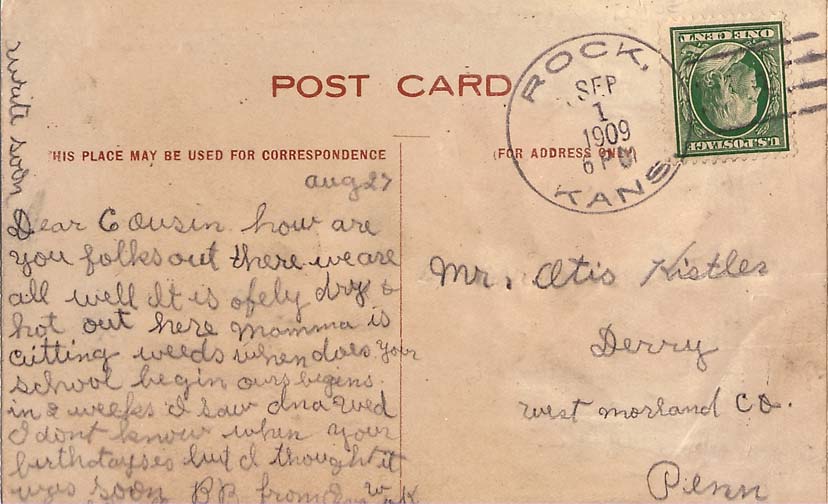 POST CARD
HIS PLACE MAY BE USED FOR CORRESPONDENCE
(FOR ADDRESS ONLY)
ROCK,
SEP
1
1909
6 PM
KANS
ONE CENT
U.S. POSTAGE
write soon
aug 27
Dear Cousin how are
you folks out there we are
all well It is ofely dry &
hot out here Momma is
cutting weeds when does your
school begin ours begins
in 2 weeks I saw
I dont know when your
birthdayses but I thought it
was soon BB from
Mr. Otis Kistler
Derry
West morland Co.
Penn